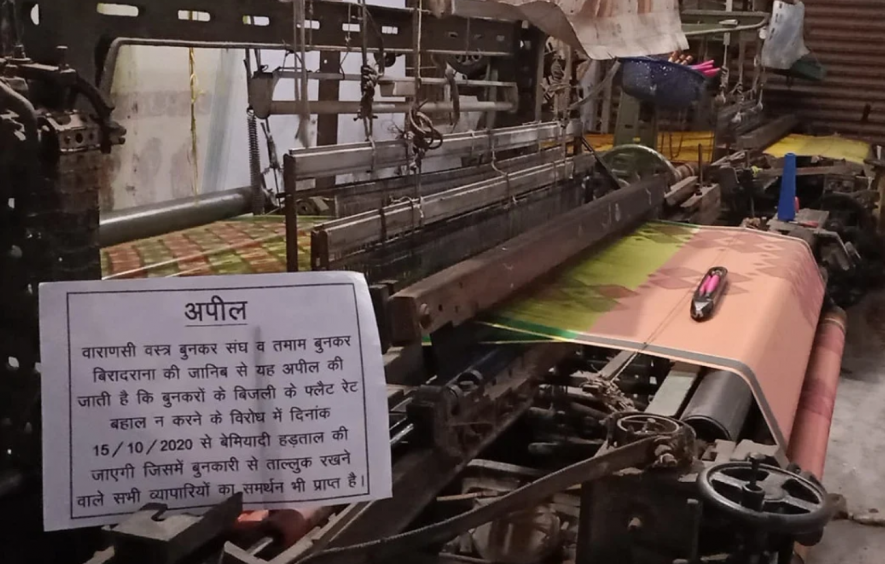 अपील
वाराणसी वस्त्र बुनकर संघ व तमाम बुनकर
बिरादराना की जानिब से यह अपील की
जाती है कि बुनकरों के बिजली के फ्लैट रेट
बहाल न करने के विरोध में दिनांक
15/10/2020 से बेमियादी हड़ताल की
जाएगी जिसमें बुनकारी से ताल्लुक रखने
वाले सभी व्यापारियों का समर्थन भी प्राप्त है।